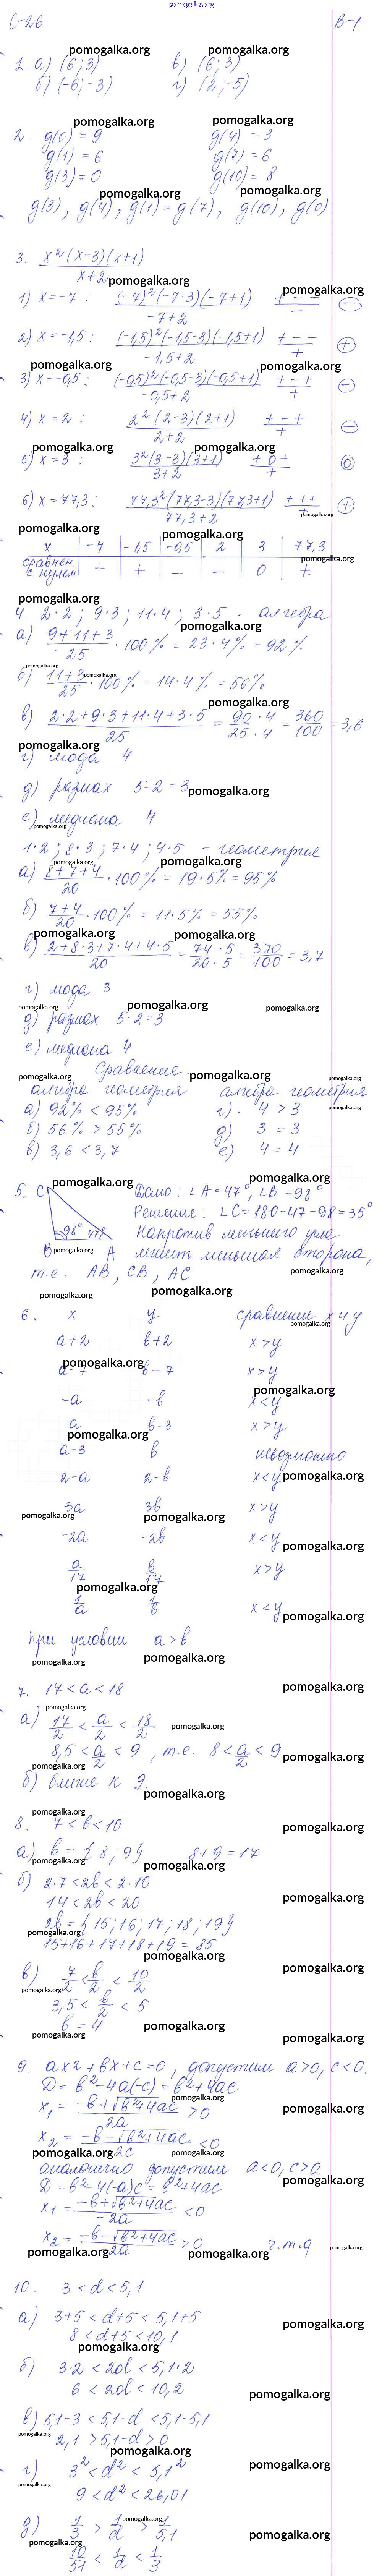 pomogalka.org
С-26 В-1
1. а) (6; 3) в) (6; 3)
б) (-6; -3) г) (2; -5)
2. g(0) = 9 g(4) = 3
g(1) = 6 g(7) = 6
g(3) = 0 g(10) = 8
g(3), g(4), g(1) = g(7), g(10), g(0)
3. x²(x-3)(x+1) / x+2
1) x = -7 : (-7)²(-7-3)(-7+1) / -7+2 + - - / - (-)
2) x = -1,5 : (-1,5)²(-1,5-3)(-1,5+1) / -1,5+2 + - - / + (+)
3) x = -0,5 : (-0,5)²(-0,5-3)(-0,5+1) / -0,5+2 + - + / + (-)
4) x = 2 : 2²(2-3)(2+1) / 2+2 + - + / + (-)
5) x = 3 : 3²(3-3)(3+1) / 3+2 + 0 + / + (0)
6) x = 77,3 : 77,3²(77,3-3)(77,3+1) / 77,3+2 + + + / + (+)
x -7 -1,5 -0,5 2 3 77,3
сравнен с нулем - + - - 0 +
4. 2·2 ; 9·3 ; 11·4 ; 3·5 - алгебра
а) 9+11+3 / 25 · 100% = 23·4% = 92%
б) 11+3 / 25 · 100% = 14·4% = 56%
в) 2·2+9·3+11·4+3·5 / 25 = 90·4 / 25·4 = 360 / 100 = 3,6
г) мода 4
д) размах 5-2=3
е) медиана 4
1·2 ; 8·3 ; 7·4 ; 4·5 - геометрия
а) 8+7+4 / 20 · 100% = 19·5% = 95%
б) 7+4 / 20 · 100% = 11·5% = 55%
в) 2+8·3+7·4+4·5 / 20 = 74·5 / 20·5 = 370 / 100 = 3,7
г) мода 3
д) размах 5-2=3
е) медиана 4
Сравнение
алгебра геометрия алгебра геометрия
а) 92% < 95% г) 4 > 3
б) 56% > 55% д) 3 = 3
в) 3,6 < 3,7 е) 4 = 4
5. C Дано: ∠A = 47°, ∠B = 98°
Решение: ∠C = 180-47-98 = 35°
98° 47° Напротив меньшего угла
B A лежит меньшая сторона,
т.е. AB, CB, AC
6. x y сравнение x и y
a+2 b+2 x > y
a-7 b-7 x > y
-a -b x < y
a b-3 x > y
a-3 b невозможно
2-a 2-b x < y
3a 3b x > y
-2a -2b x < y
a/17 b/17 x > y
1/a 1/b x < y
при условии a > b
7. 17 < a < 18
а) 17/2 < a/2 < 18/2
8,5 < a/2 < 9, т.е. 8 < a/2 < 9
б) ближе к 9
8. 7 < b < 10
а) b = {8; 9} 8+9 = 17
б) 2·7 < 2b < 2·10
14 < 2b < 20
2b = {15; 16; 17; 18; 19}
15+16+17+18+19 = 85
в) 7/2 < b/2 < 10/2
3,5 < b/2 < 5
b = 4
9. ax2 + bx + c = 0, допустим a>0, c<0.
D = b² - 4a(-c) = b² + 4ac
x₁ = -b+√b²+4ac / 2a > 0
x₂ = -b-√b²+4ac / 2c < 0
аналогично допустим a<0, c>0.
D = b² - 4(-a)c = b² + 4ac
x₁ = -b+√b²+4ac / -2a < 0
x₂ = -b-√b²+4ac / -2a > 0 ч.т.д
10. 3 < d < 5,1
а) 3+5 < d+5 < 5,1+5
8 < d+5 < 10,1
б) 3·2 < 2d < 5,1·2
6 < 2d < 10,2
в) 5,1-3 < 5,1-d < 5,1-5,1
2,1 > 5,1-d > 0
г) 3² < d² < 5,1²
9 < d² < 26,01
д) 1/3 > 1/d > 1/5,1
10/51 < 1/d < 1/3